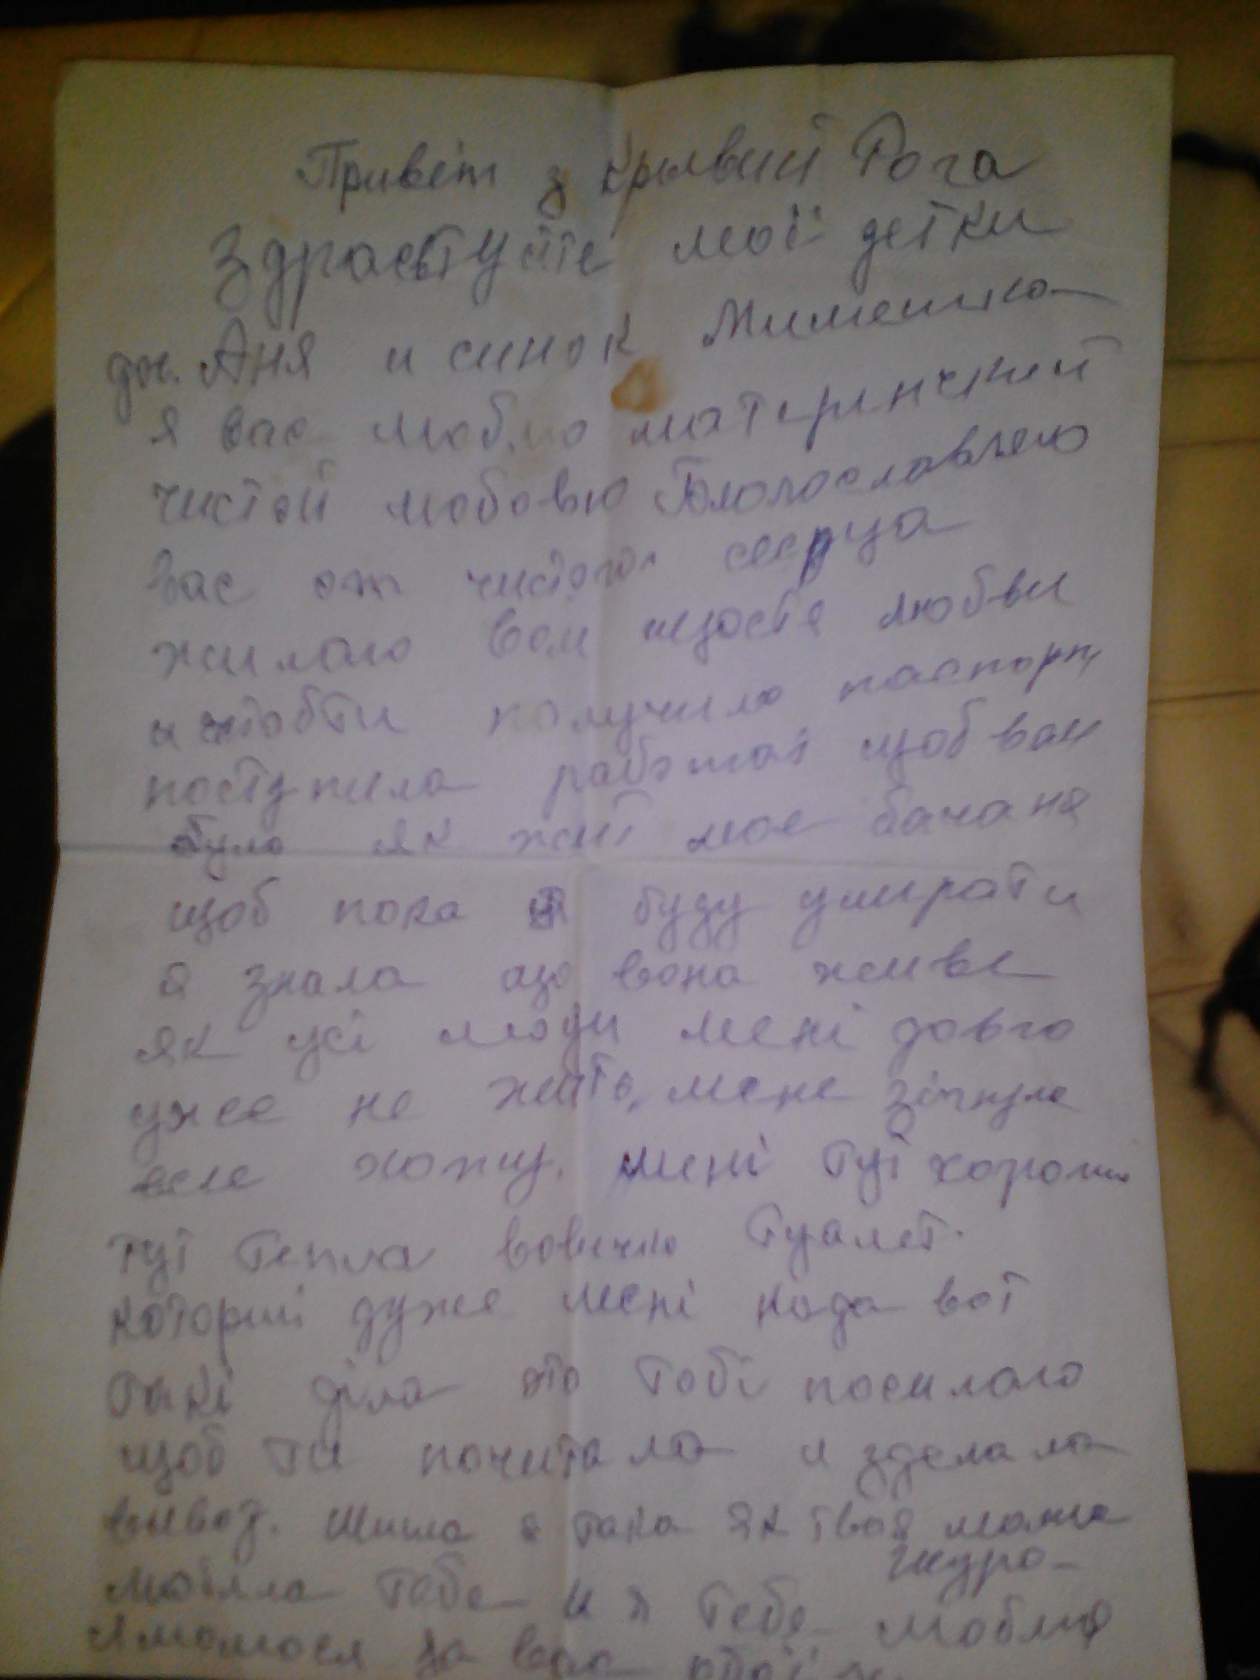 Привет з Крывый Рога
Здраствуйте мої детки
доч. Аня и синок
я вас люблю матерінчкой
чистой любовю Благославляю
Вас от чистого сесрца
жилаю Вам щостя любви
и штоб ти получила паспорт
поступила работат щоб вам
було як жит моє бачаня
щоб пока я буду умирати
я знала що вона живе
як усі люди мені довго
уже не жить, мене зігнуло
еле хожу. мені тут хорошо
тут тепла туалет.
которий дуже мені нада вот
такі діла это тобі посилаю
щоб ти почитала и зделала
вывод. Миша я така як твоя мама
журо-
любила тебе и я тебе люблю
я молюся за вас обоїх